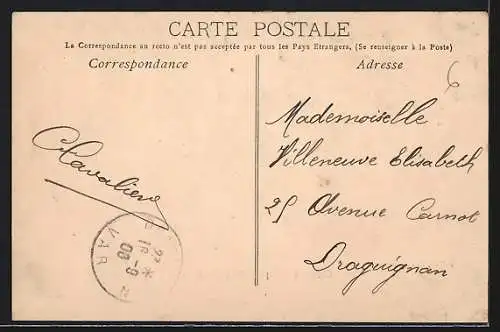 CARTE POSTALE
La Correspondance au recto n'est pas acceptée par tous les Pays Etrangers, (Se renseigner à la Poste)
Correspondance
Adresse
6
Mademoiselle
Villeneuve Elisabeth
25 Avenue Carnot
Draguignan
Cavaliere
VAR